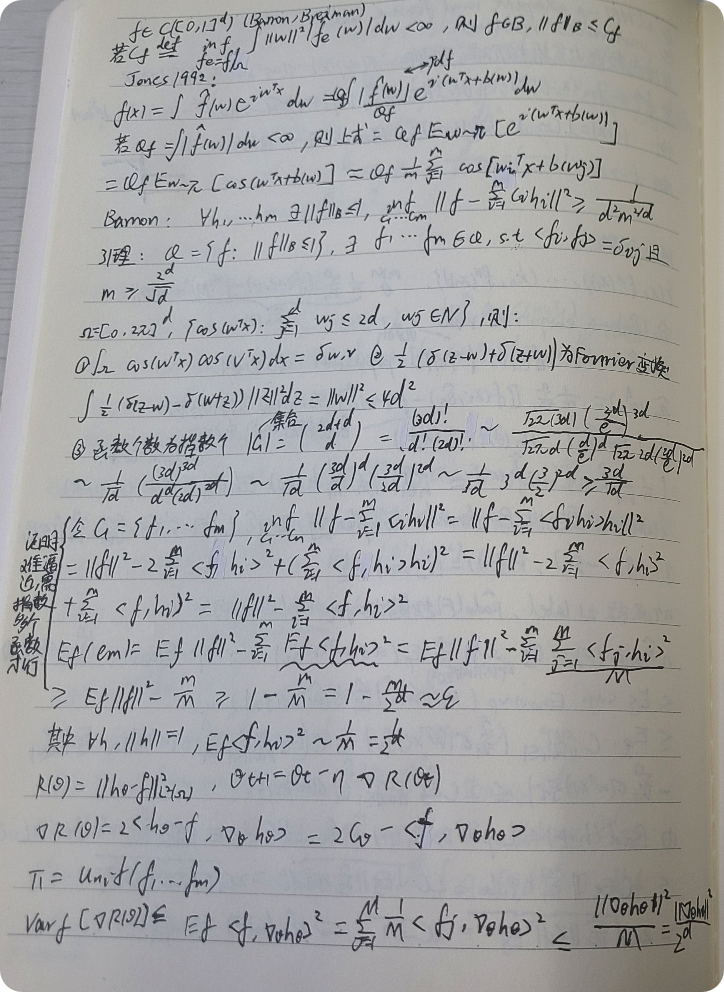 f∈C([0,1]^d) (Barron, Breiman)
若C_f \overset{def}{=} \inf_{f_e=f|_Ω} ∫||w||²|\hat{f}_e(w)|dw<∞, 则 f∈B, ||f||_B ≤ C_f
Jones 1992:
f(x)=∫ \hat{f}(w)e^{iw^Tx}dw = Q_f∫ \frac{|\hat{f}(w)|}{Q_f} e^{i(w^Tx+b(w))}dw ↔pdf
若 Q_f=∫|\hat{f}(w)|dw<∞, 则上式= Q_f E_{w~π}[e^{i(w^Tx+b(w))}]
= Q_f E_{w~π}[cos(w^Tx+b(w))] ≈ Q_f \frac{1}{m} \sum_{j=1}^m cos[w_j^Tx+b(w_j)]
Barron: ∀h_1,…h_m ∃||f||_B≤1, \inf_{C_1…C_m} ||f-\sum_{i=1}^m C_ih_i||² ≥ \frac{1}{d^2m^{4/d}}
引理: Q={f: ||f||_B≤1}, ∃ f_1…f_m∈Q, s.t <f_i,f_j>=δ_{ij}且
m ≥ \frac{2^d}{\sqrt{d}}
Ω=[0,2π]^d, {cos(w^Tx): \sum_{j=1}^d w_j≤2d, w_j∈N}, 则:
①∫_Ω cos(w^Tx)cos(v^Tx)dx=δ_{w,v} ② \frac{1}{2}(δ(z-w)+δ(z+w))为Fourier变换
∫\frac{1}{2}(δ(z-w)-δ(w+z))||z||²dz=||w||²≤4d²
③函数个数为指数个 |G|(集合)=\binom{2d+d}{d} = \frac{(3d)!}{d!(2d)!} ~ \frac{\sqrt{2π(3d)}(\frac{3d}{e})^{3d}}{\sqrt{2πd}(\frac{d}{e})^d\sqrt{2π2d}(\frac{2d}{e})^{2d}}
~ \frac{1}{\sqrt{d}} \frac{(3d)^{3d}}{d^d(2d)^{2d}} ~ \frac{1}{\sqrt{d}}(\frac{3d}{d})^d(\frac{3d}{2d})^{2d} ~ \frac{1}{\sqrt{d}} 3^d(\frac{3}{2})^{2d} ≥ \frac{3^d}{\sqrt{d}}
证明难逼近,需指数多个函数才行
令G={f_1,…f_m}, \inf_{C_1…C_m} ||f-\sum_{i=1}^m c_ih_i||²=||f-\sum_{i=1}^m <f,h_i>h_i||²
=||f||²-2\sum_{i=1}^m <f,h_i>²+(\sum_{i=1}^m <f,h_i>h_i)²=||f||²-2\sum_{i=1}^m <f,h_i>²
+\sum_{i=1}^m <f,h_i>²=||f||²-\sum_{i=1}^m <f,h_i>²
E_f(e_m)=E_f||f||²-\sum_{i=1}^m E_f<f,h_i>²=E_f||f||²-\sum_{i=1}^m \frac{\sum_{j=1}^M <f_j,h_i>²}{M}
≥ E_f||f||²-\frac{m}{M} ≥ 1-\frac{m}{M}=1-\frac{m}{2^d}≈ε
其中∀h, ||h||=1, E_f<f,h_i>² ~ \frac{1}{M}=\frac{1}{2^d}
R(θ)=||h_θ-f||²_{L²(Ω)}, θ_{t+1}=θ_t-η∇R(θ_t)
∇R(θ)=2<h_θ-f,∇_θh_θ>=2C_θ-<f,∇_θh_θ>
π=unif(f_1…f_m)
Var_f[∇R(θ)]≤E_f<f,∇_θh_θ>²=\sum_{j=1}^M \frac{1}{M}<f_j,∇_θh_θ>² ≤ \frac{||∇_θh_θ||²}{M}=\frac{||∇_θh_θ||²}{2^d}